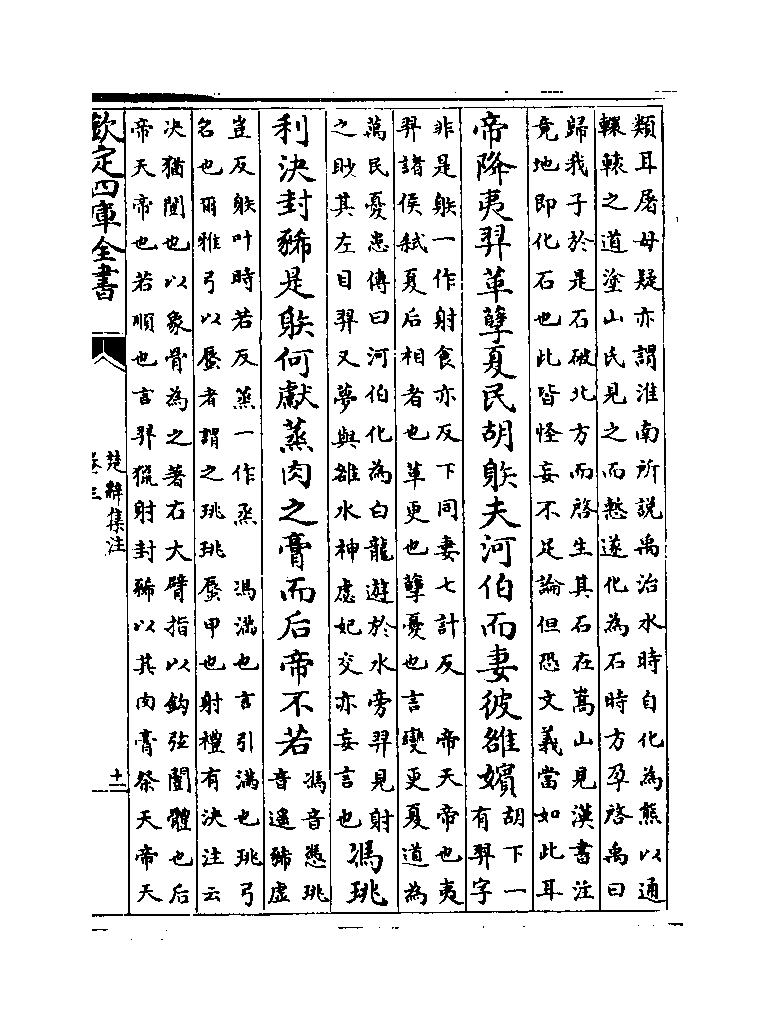 類耳屠母疑亦謂淮南所說禹治水時自化為熊以通
轘轅之道塗山氏見之而慙遂化為石時方孕啓禹曰
歸我子於是石破北方而啓生其石在嵩山見漢書注
竟地即化石也此皆怪妄不足論但恐文義當如此耳
帝降夷羿革孽夏民胡䠶夫河伯而妻彼雒嬪胡下一
有羿字
非是䠶一作射食亦反下同妻七計反　帝天帝也夷
羿諸侯弒夏后相者也革更也孽憂也言變更夏道為
萬民憂患傳曰河伯化為白龍遊於水旁羿見射
之眇其左目羿又夢與雒水神虙妃交亦妄言也
馮珧
利決封豨是䠶何獻蒸肉之膏而后帝不若馮音憑珧
音遥豨虛
豈反䠶叶時若反蒸一作烝　馮滿也言引滿也珧弓
名也爾雅弓以蜃者謂之珧珧蜃甲也射禮有決注云
決猶闓也以象骨為之著右大臂指以鈎弦闓體也后
帝天帝也若順也言羿獵射封豨以其肉膏祭天帝天
欽定四庫全書
楚辭集注
卷三
十二